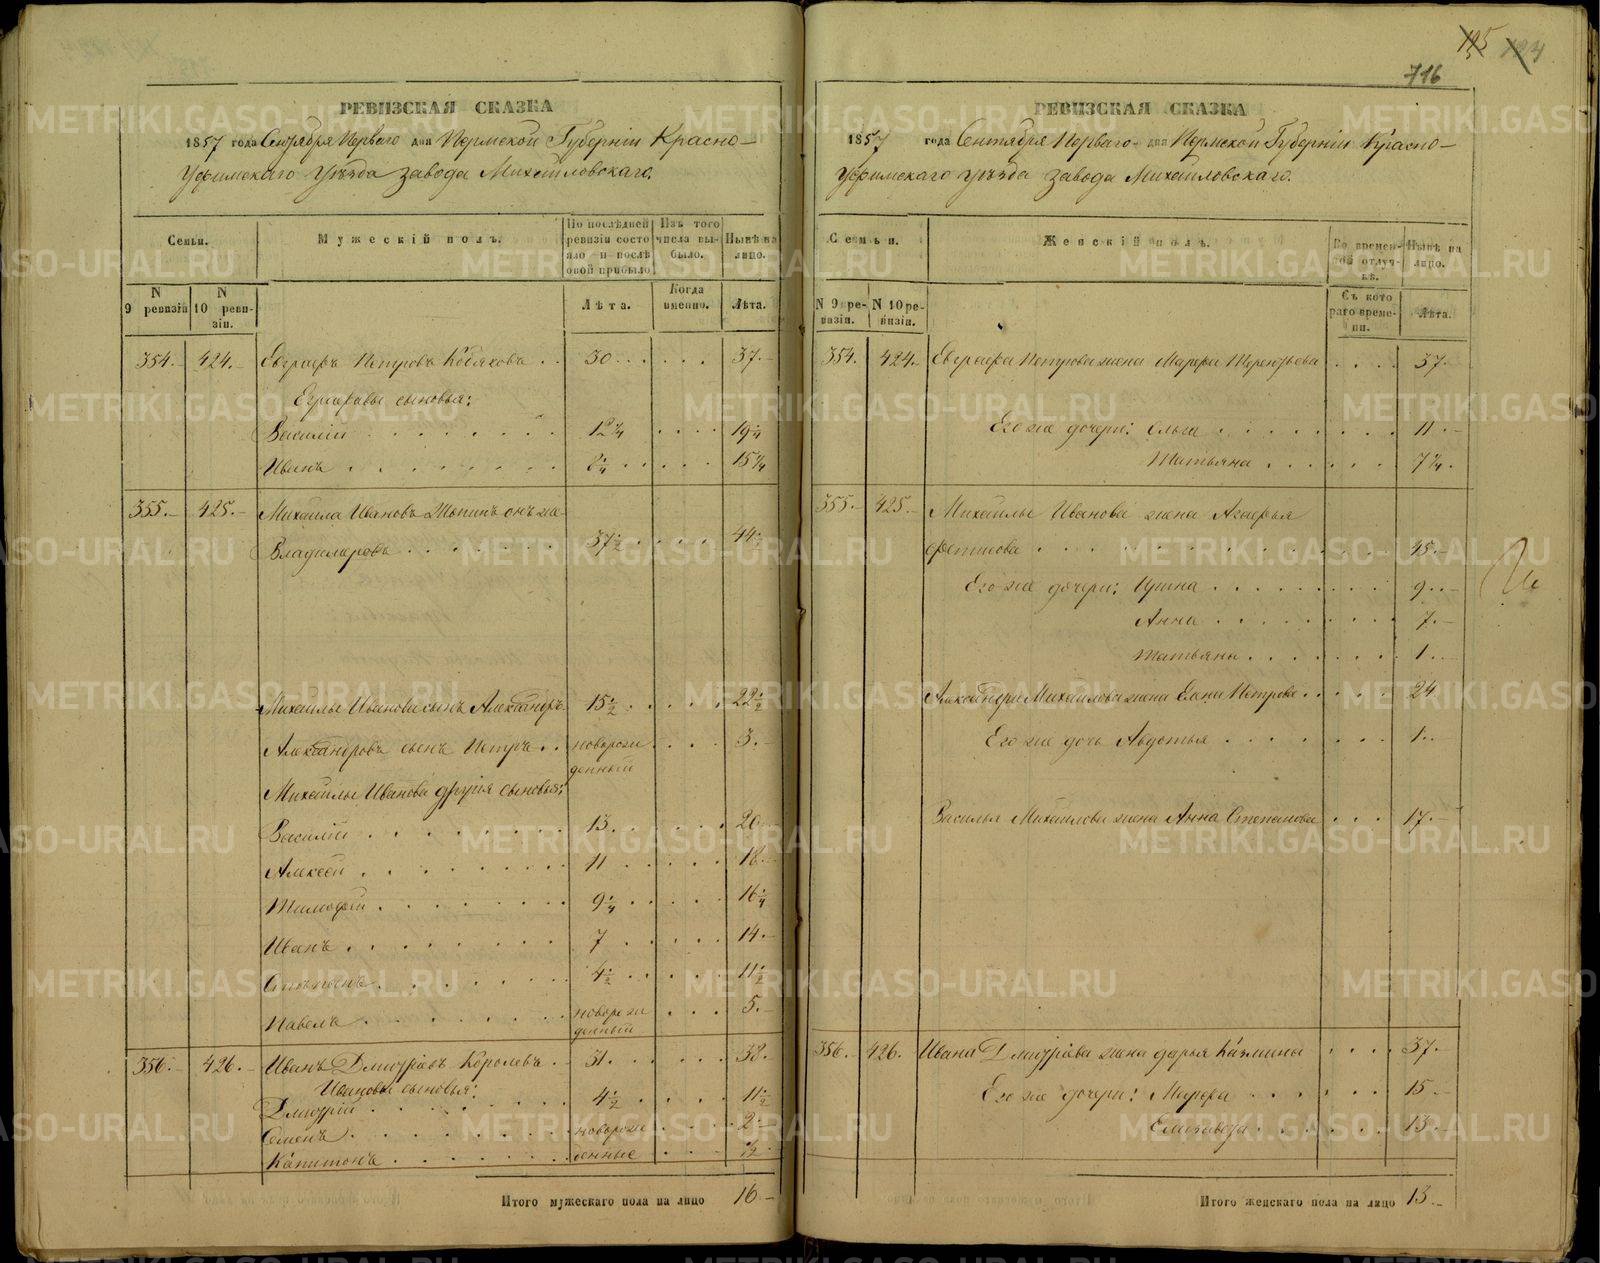 125 124
716
РЕВИЗСКАЯ СКАЗКА
1857 года Сентября Перваго дня Пермской Губерніи Красно-
уфимскаго уѣзда завода Михайловскаго.
Семьи.
Мужескій полъ.
По послѣдней ревизіи состояло и послѣ оной прибыло
Изъ того числа выбыло.
Нынѣ на лицо.
N 9 ревизіи
N 10 ревизіи.
Лѣта.
Когда именно.
Лѣта.
354. 424. Евграфъ Петровъ Кобяковъ 30 37.
Евграфовы сыновья:
Василій 12 3/4 19 3/4
Иванъ 8 1/4 15 1/4
355. 425. Михайла Ивановъ онъ же
Владимеровъ 37 1/2 44 1/2
Михайлы Иванова сынъ Александръ 15 1/2 22 1/2
Александровъ сынъ Петръ новорож 3.
денный
Михайлы Иванова другія сыновья:
Василій 13. 20
Алексей 11 18.
Тимофей 9 1/4 16 1/4
Иванъ 7 14.
Степанъ 4 1/2 11 1/2
Павелъ новорож 5.
денный
356. 426. Иванъ Дмитріевъ Королевъ 31. 38.
Ивановы сыновья:
Дмитрій 4 1/2 11 1/2
Семенъ новорож 2
Капитонъ денные 1/2
Итого мужескаго пола на лицо 16
РЕВИЗСКАЯ СКАЗКА
1857 года Сентября Перваго дня Пермской Губерніи Красно-
уфимскаго уѣзда завода Михайловскаго.
Семьи.
Женскій полъ.
Во временной отлучкѣ.
Нынѣ на лицо.
N 9 ревизіи.
N 10 ревизіи.
Съ котораго времени.
Лѣта.
354. 424. Евграфа Петрова жена Марфа Терентьева 37
Его же дочери: Ольга 11
Татьяна 7 1/4
355. 425. Михайлы Иванова жена Агафья
45.
Его же дочери: Ирина 9
Анна 7.
Татьяна 1
Александра Михайлова жена Елена Петрова 24
Его же дочь Авдотья 1.
Василья Михайлова жена Анна Степанова 17.
356. 426. Ивана Дмитріева жена Дарья Кузмина 37.
Его же дочери: Марфа 15
Елизавета 13.
Итого женскаго пола на лицо 13.
METRIKI.GASO-URAL.RU